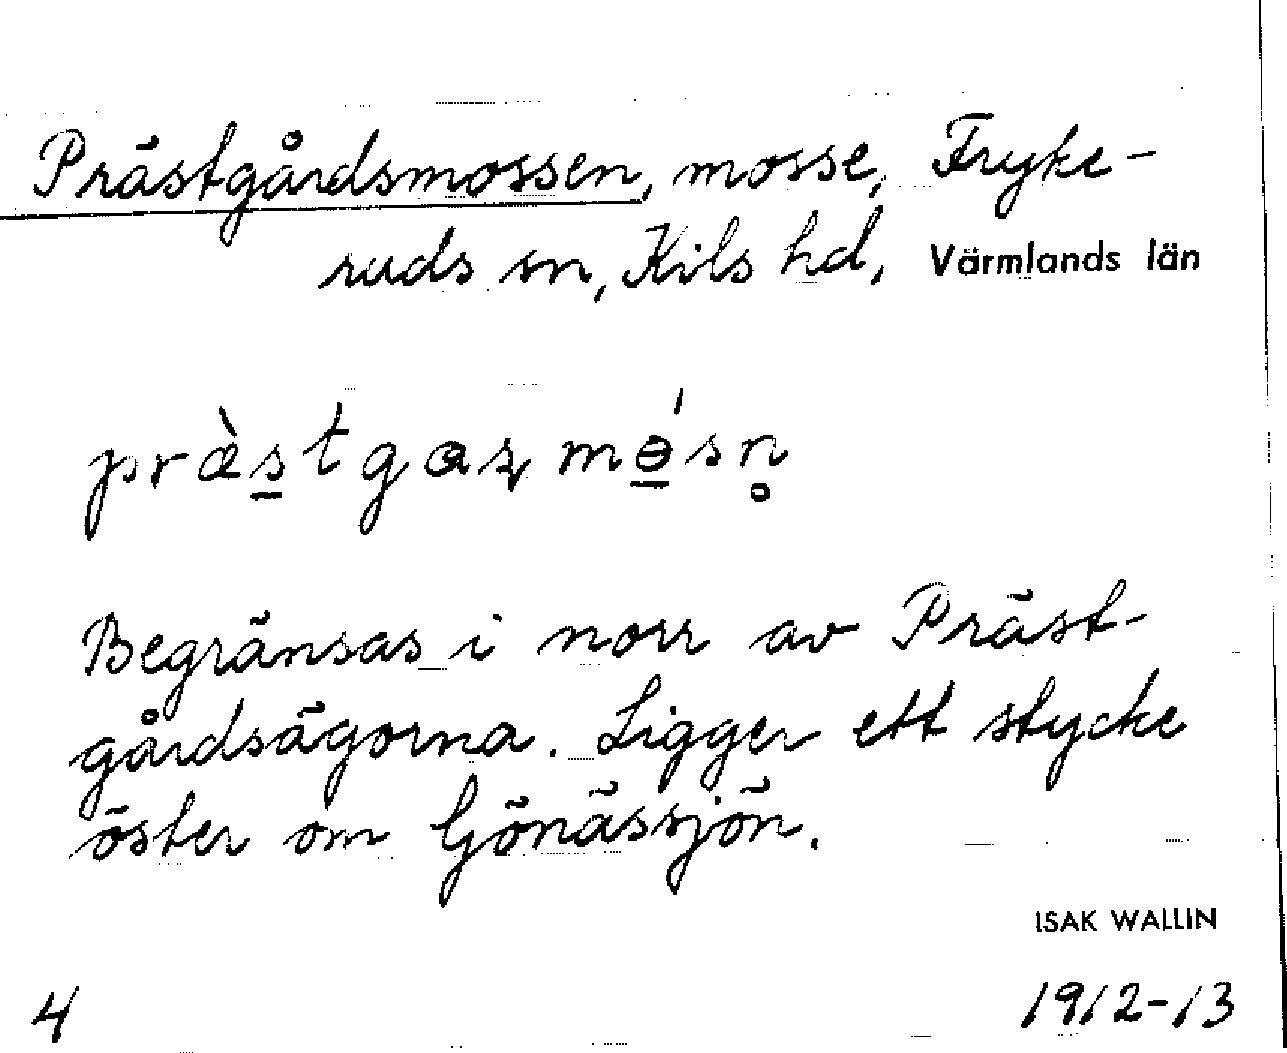 Prästgårdsmossen, mosse, Fryke-
ruds sn, Kils hd, Värmlands län
præ̀s̲tgaʂmə̲́sn̥
Begränsas i norr av Präst-
gårdsägorna. Ligger ett stycke
öster om Gönässjön.
ISAK WALLIN
4 1912-13